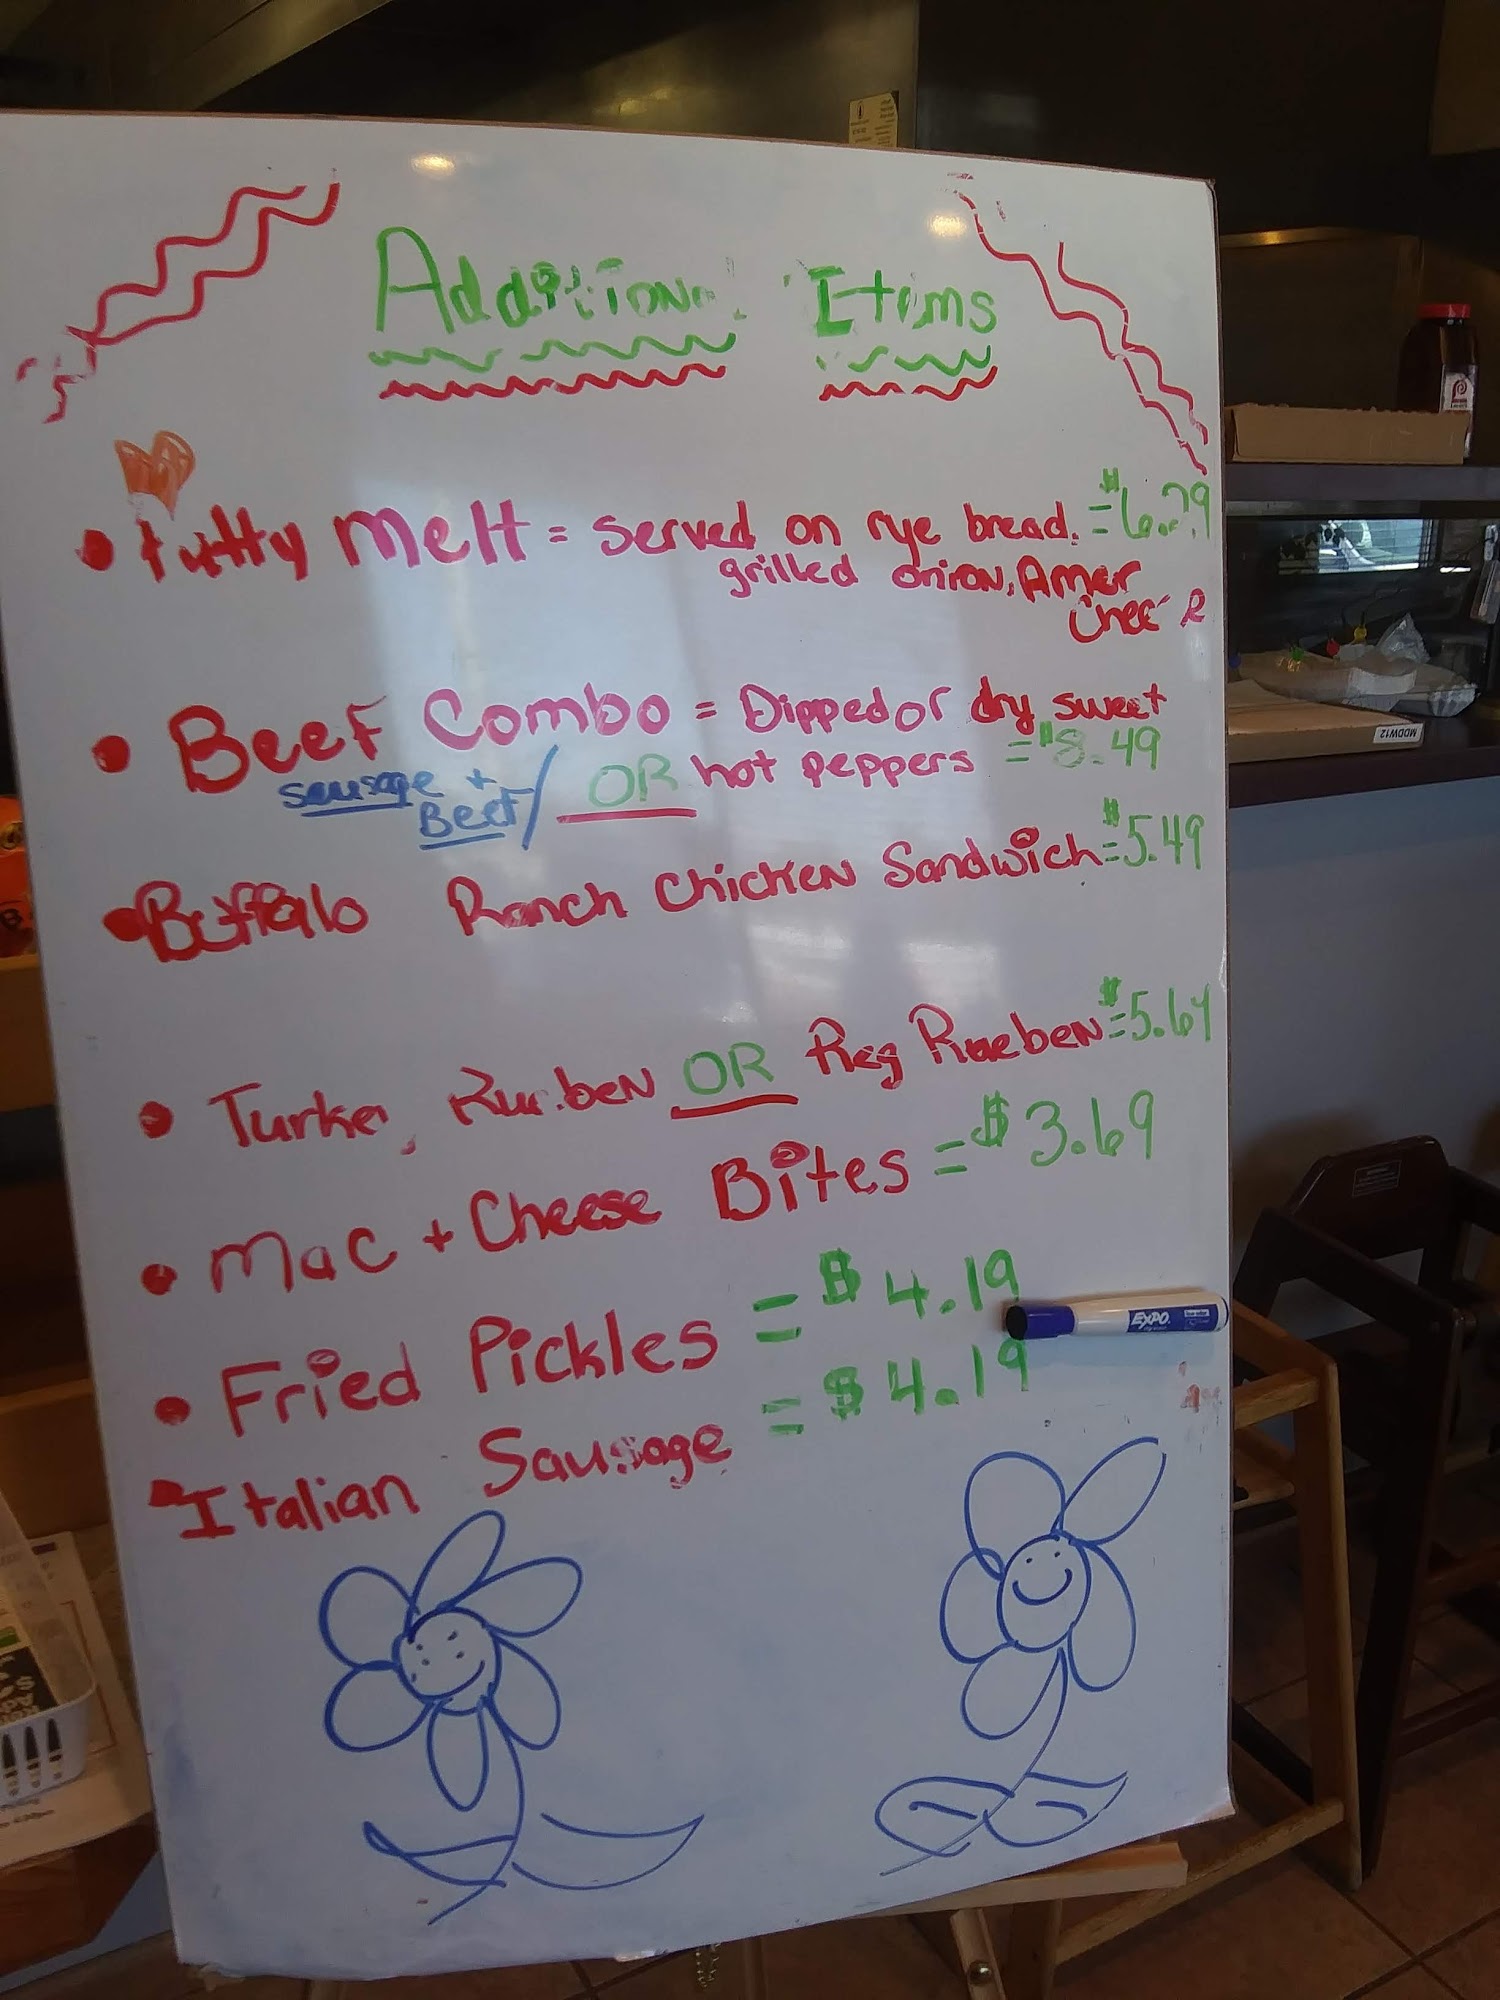 Additional Items
• Patty Melt = Served on rye bread. = $6.79
grilled onion, Amer
Chee
• Beef Combo = Dipped or dry sweet
sausage + Beef / OR hot peppers = $8.49
• Buffalo Ranch Chicken Sandwich = $5.49
• Turkey OR Reg Rueben = $5.69
• Mac + Cheese Bites = $3.69
• Fried Pickles = $4.19
• Italian Sausage = $4.19
EXPO
MDDW12